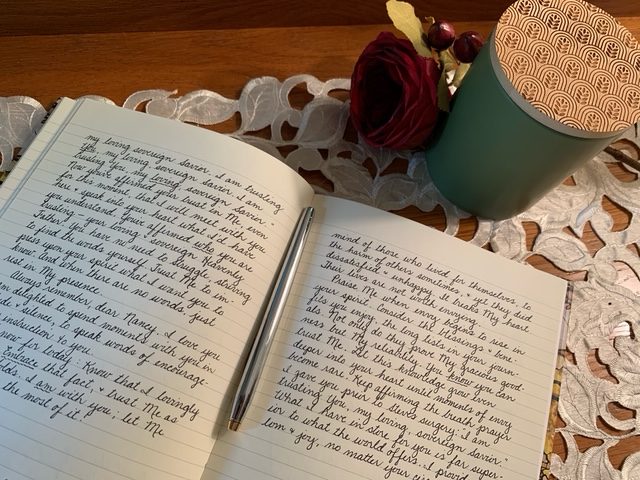 my loving sovereign Savior. I am trusting
You, my loving sovereign Savior. I am
trusting You, my loving sovereign Savior."
Now you've affirmed your trust in Me, even
for this moment, that I will meet with you
here & speak into your heart what I'd have
you understand. You've affirmed who you are
trusting - your loving, sovereign Heavenly
Father. You have no need to struggle, striving
to find the words yourself. Trust Me to im-
press upon your spirit what I want you to
know. And when there are no words, just
rest in My presence.
Always remember, dear Nancy, I love you
am delighted to spend moments with you in
silence, to speak words of encourage-
instruction to you.
now for today: Know that I lovingly
Embrace that fact, & trust Me as
I am with you; let Me
the most of it!
mind of those who lived for themselves, to
the harm of others sometimes, & yet they died
dissatisfied & unhappy. It breaks My heart.
Their lives are not worth envying.
Praise Me when envy begins to use in
your spirit. Consider the blessings & bene-
fits you enjoy, the long lists in your journ-
als. Not only do they prove My gracious good-
ness but My reliability. You know you can
trust Me. Let this knowledge grow even
deeper into your heart until moments of envy
become rare. Keep affirming the breath prayer
I gave you prior to Steve's surgery: "I am
trusting You, my loving, sovereign Savior."
What I have in store for you is far super-
ior to what the world offers. I provide
& joy, no matter your